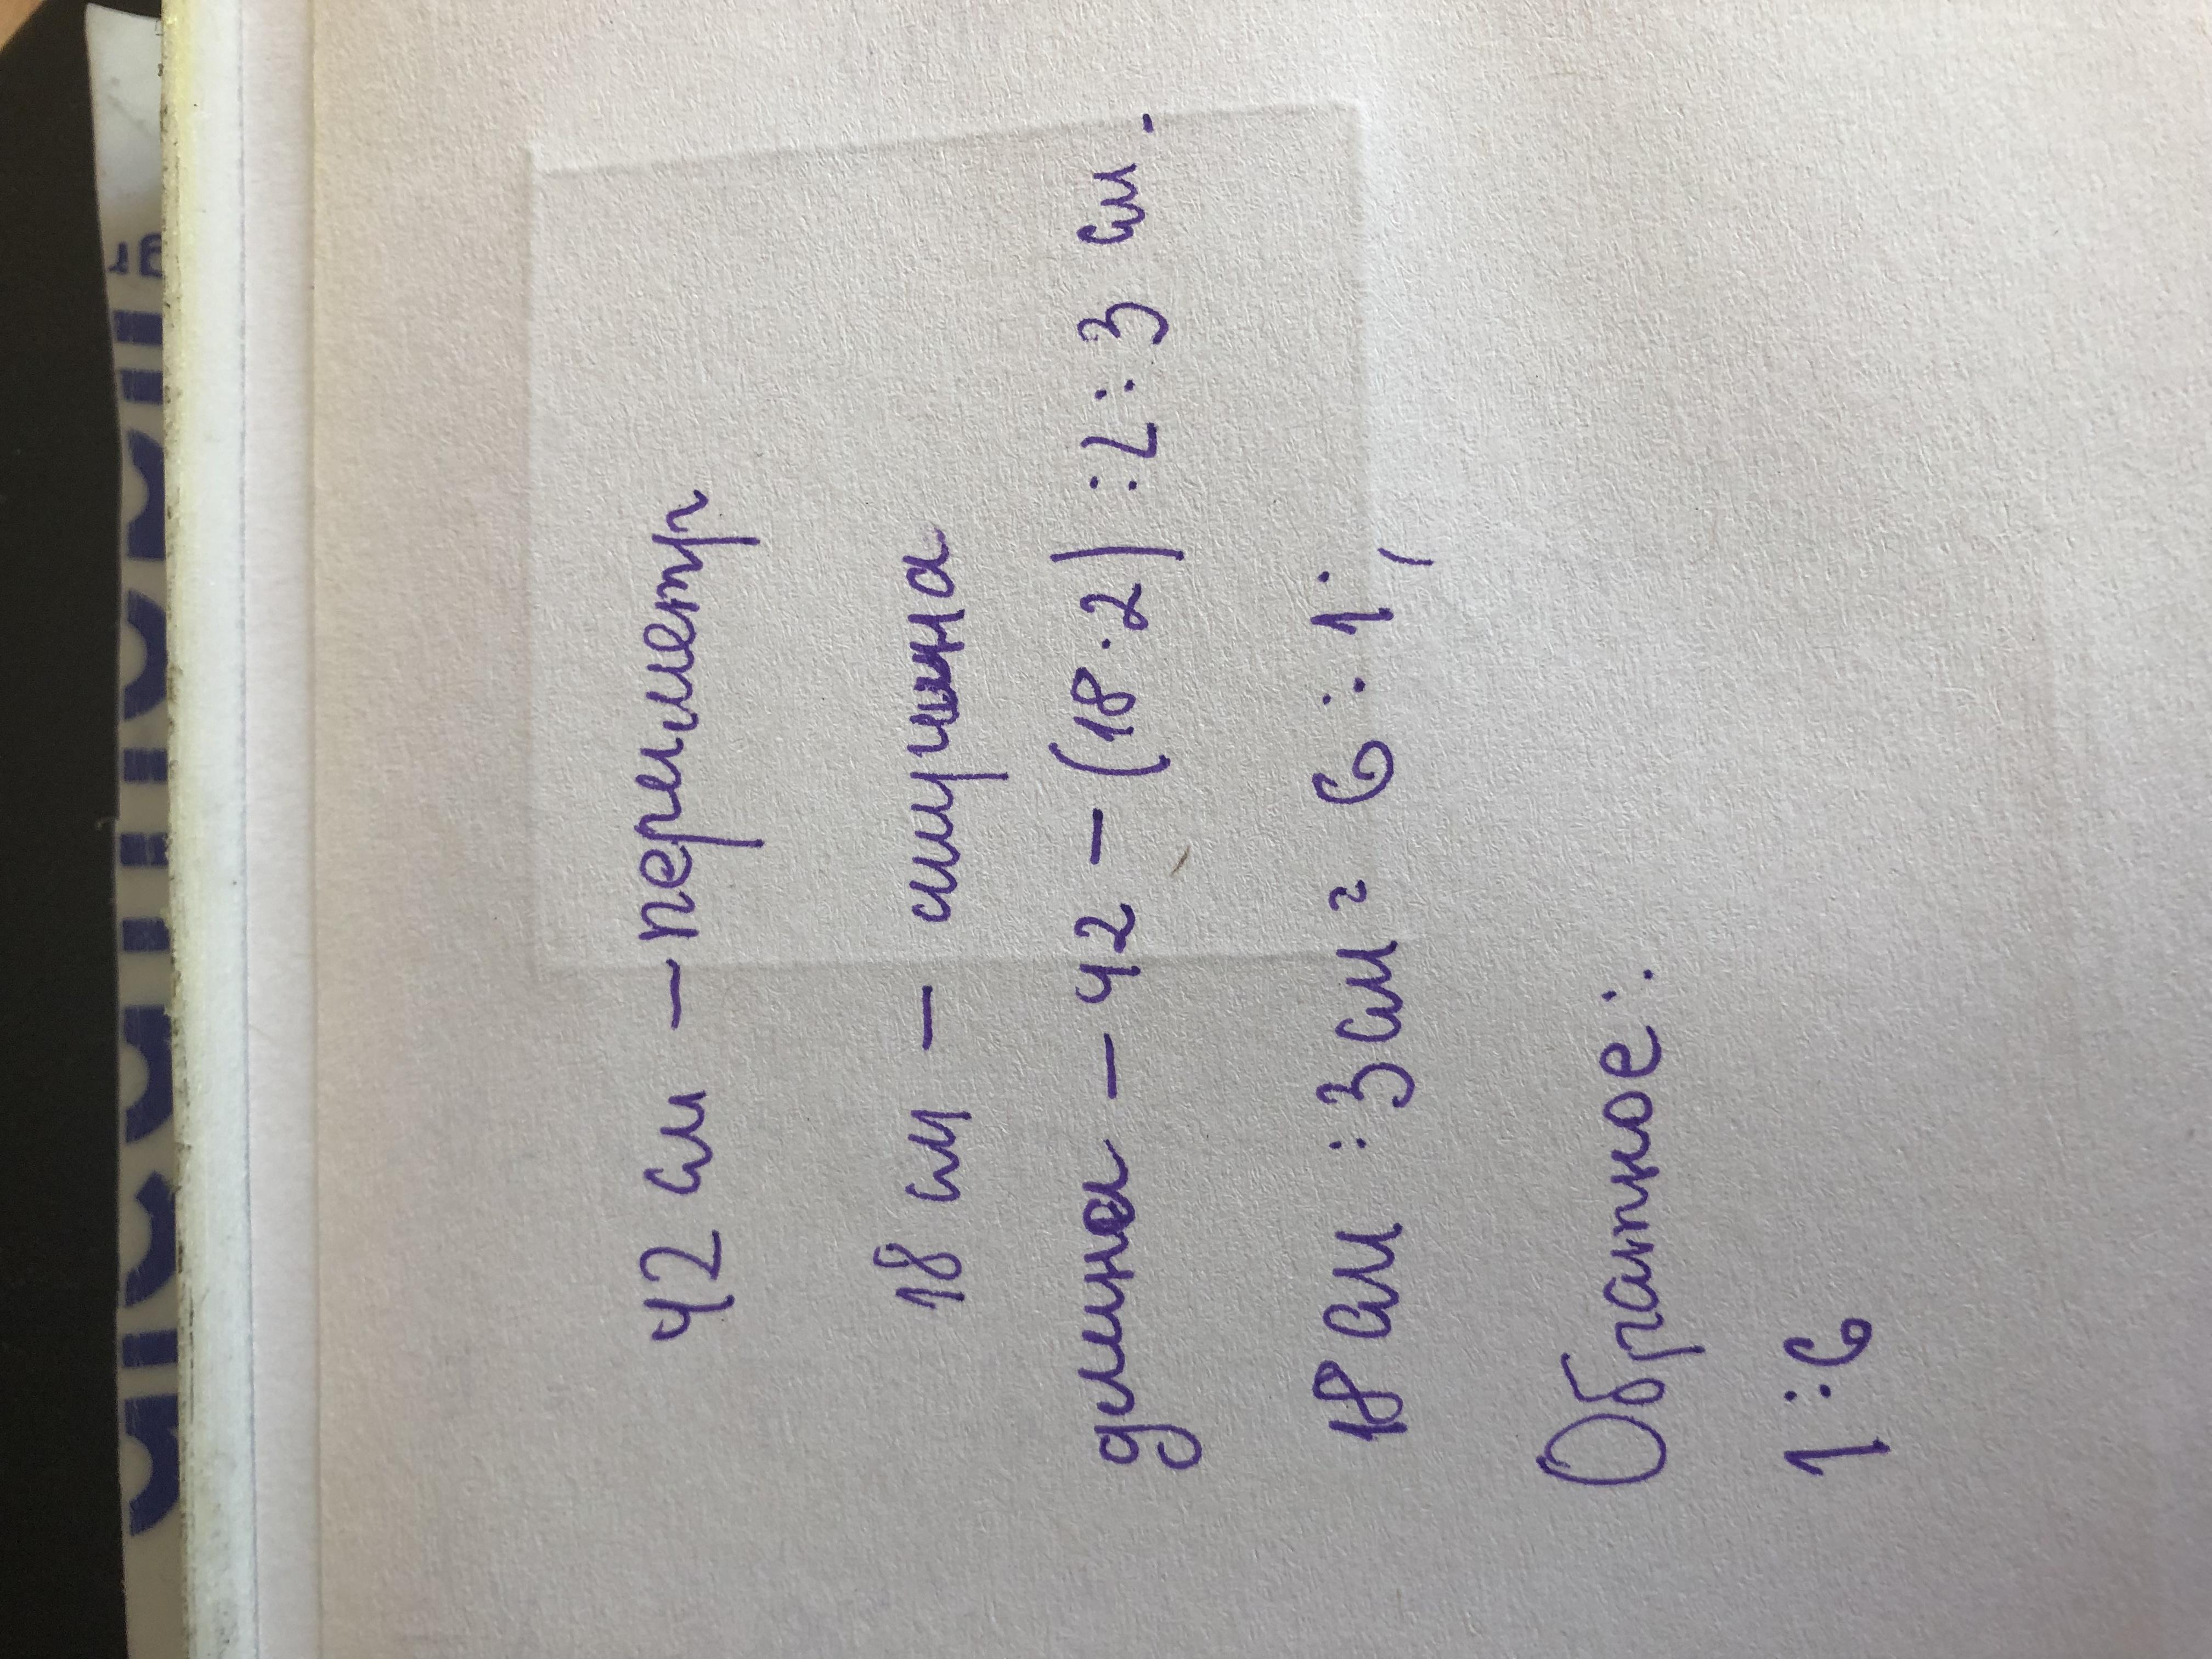 42 см – периметр
18 см – ширина
длина – 42 – (18·2) : 2 : 3 см.
18 см : 3 см = 6 : 1;
Обратное:
1 : 6